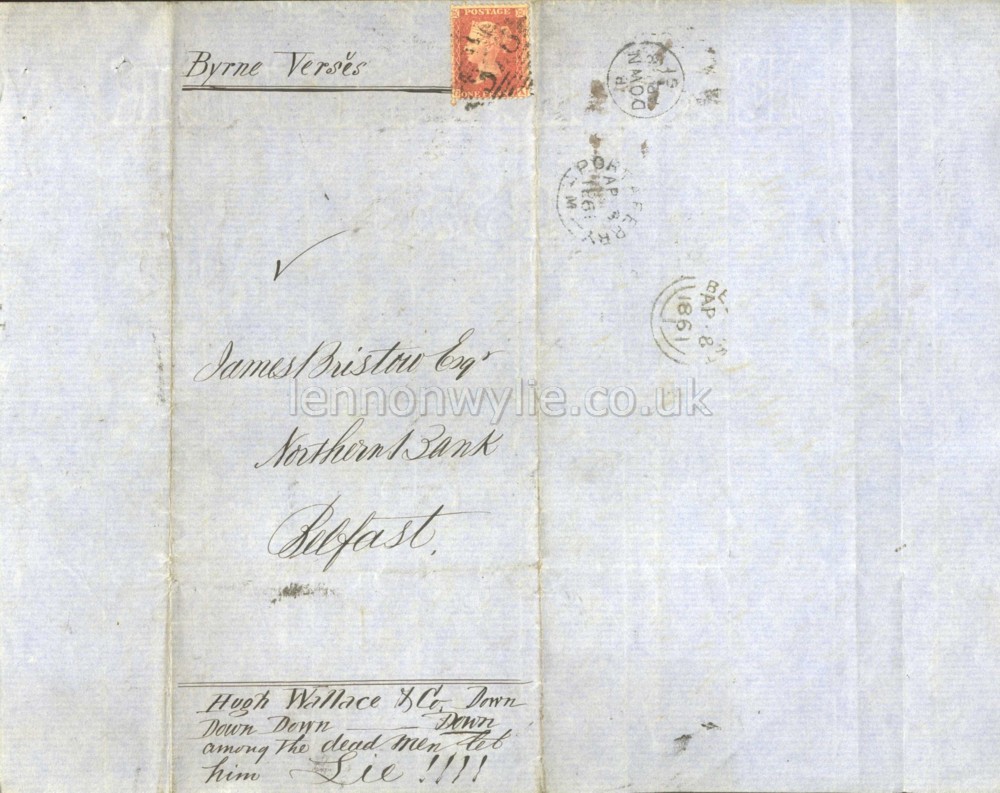 Byrne Versẽs
POSTAGE
James Bristow Esqr
lennonwylie.co.uk
Northern Bank
Belfast.
Hugh Wallace & Co. Down
Down Down — Down
among the dead men let
him Lie !!!!
DOWN
PORTAFERRY
AP 8
1861
AP 8
1861